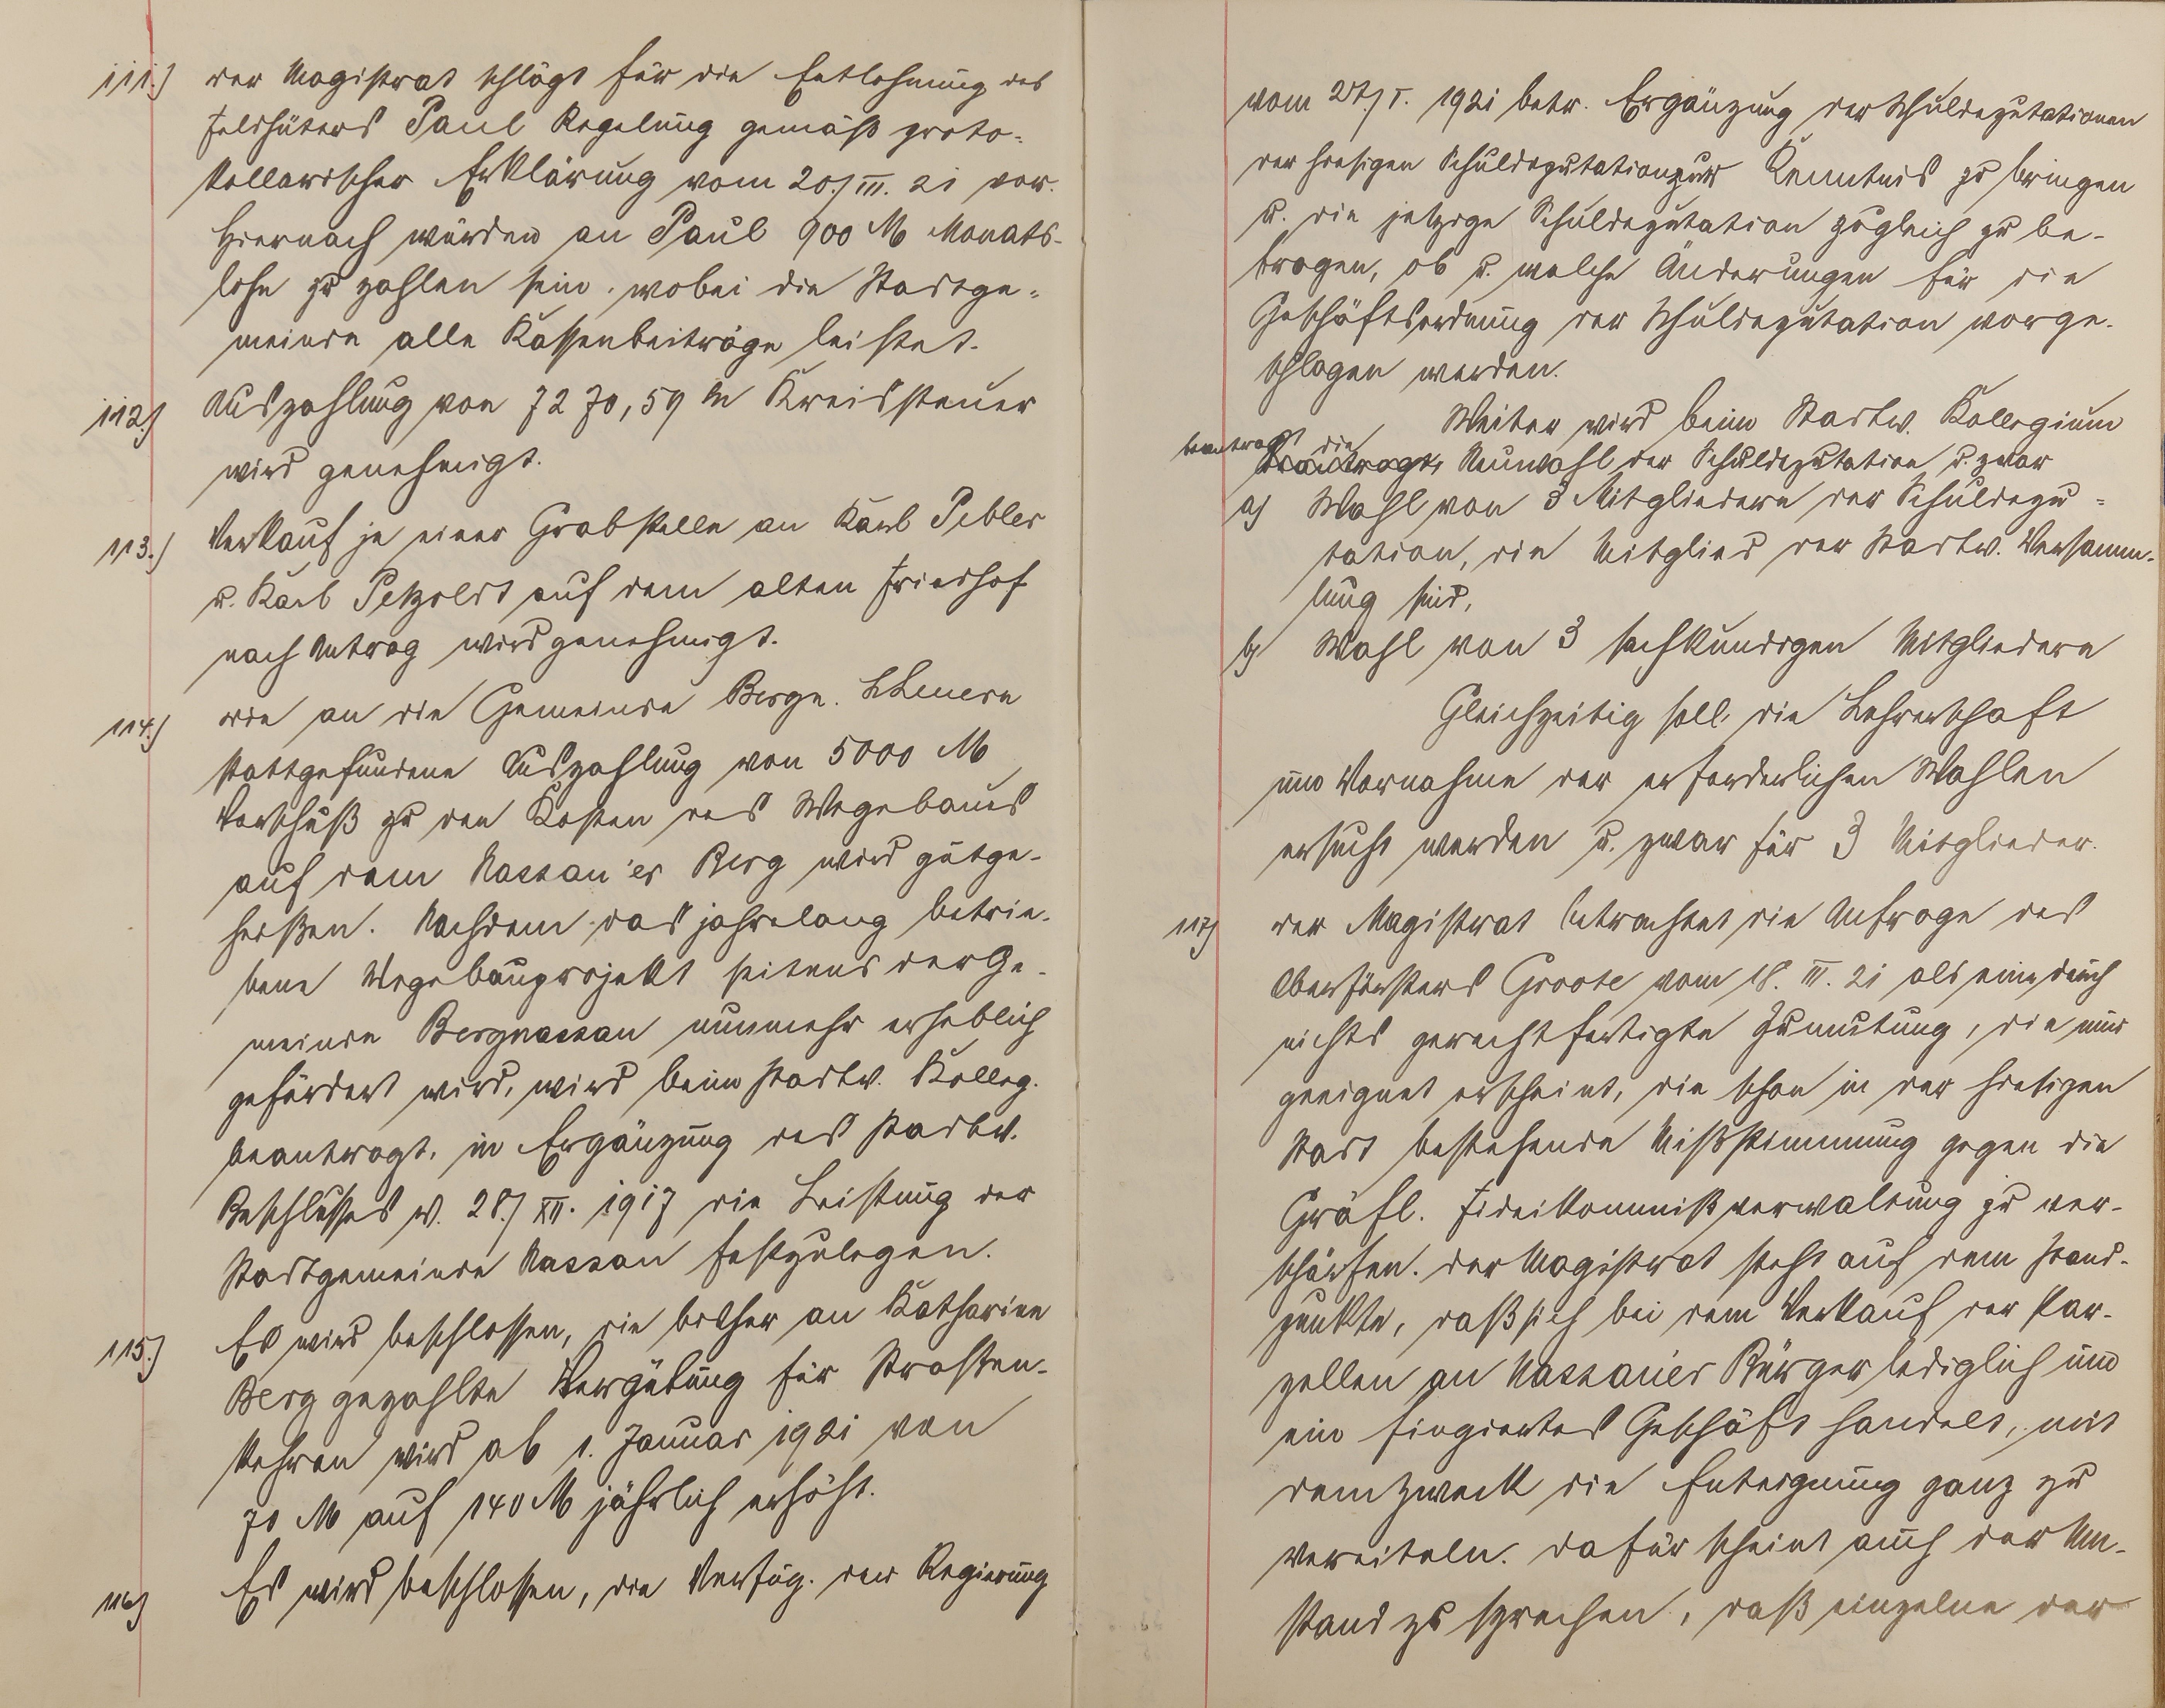 111.) Der Magistrat schlägt für die Entlohnung des
Feldhüters Paul Regelung gemäß proto-
kollarischer Erklärung vom 20./III. 21 vor.
Hiernach würden an Paul 900 M Monats-
lohn zu zahlen sein, wobei die Stadtge-
meinde alle Kassenbeiträge leistet.
112.) Auszahlung von 7270,59 M Kreissteuer
wird genehmigt.
113.) Verkauf je einer Grabstelle an Karl Pebler
u. Karl Petzoldt auf dem alten Friedhof
nach Antrag wird genehmigt.
114.) Die an die Gemeinde Bergn. Scheuern
stattgefundene Auszahlung von 5000 M
Vorschuß zu den Kosten des Wegebaues
auf dem Nassau'er Berg wird gutge-
heißen. Nachdem das jahrelang betrie-
bene Wegebauprojekt seitens der Ge-
meinde Bergnassau nunmehr erheblich
gefördert wird, wird beim Stadtv. Kolleg.
beantragt, in Ergänzung des Stadtv.
Beschlusses v. 28./XII. 1917 die Leistung der
Stadtgemeinde Nassau festzulegen.
115.) Es wird beschlossen, die bisher an Katharine
Berg gezahlte Vergütung für Straßen-
kehren wird ab 1. Januar 1921 von
70 M auf 140 M jährlich erhöht.
116.) Es wird beschlossen, die Verfüg. der Regierung
vom 27./I. 1921 betr. Ergänzung der Schuldeputationen
der hiesigen Schuldeputation zur Kenntnis zu bringen
u. die jetzige Schuldeputation zugleich zu be-
fragen, ob u. welche Änderungen für die
Geschäftsordnung der Schuldeputation vorge-
schlagen werden.
Weiter wird beim Stadtv. Kollegium
beantragt die
beantragt, Neuwahl der Schuldeputation u. zwar
a) Wahl von 3 Mitgliedern der Schuldepu-
tation, die Mitglied der Stadtv. Versamm-
lung sind,
b) Wahl von 3 sachkundigen Mitgliedern
Gleichzeitig soll die Lehrerschaft
um Vornahme der erforderlichen Wahlen
ersucht werden u. zwar für 3 Mitglieder.
117.) Der Magistrat betrachtet die Anfrage des
Oberförsters Groote vom 18. III. 21 als eine durch
nichts gerechtfertigte Zumutung, die nur
geeignet erscheint, die schon in der hiesigen
Stadt bestehende Mißstimmung gegen die
Gräfl. Fideikommißverwaltung zu ver-
schärfen. Der Magistrat steht auf dem Stand-
punkte, daß sich bei dem Verkauf der Par-
zellen an Nassauer Bürger lediglich um
ein fingiertes Geschäft handelt, mit
dem Zweck die Enteignung ganz zu
vereiteln. Dafür scheint auch der Um-
stand zu sprechen, daß einzelne der